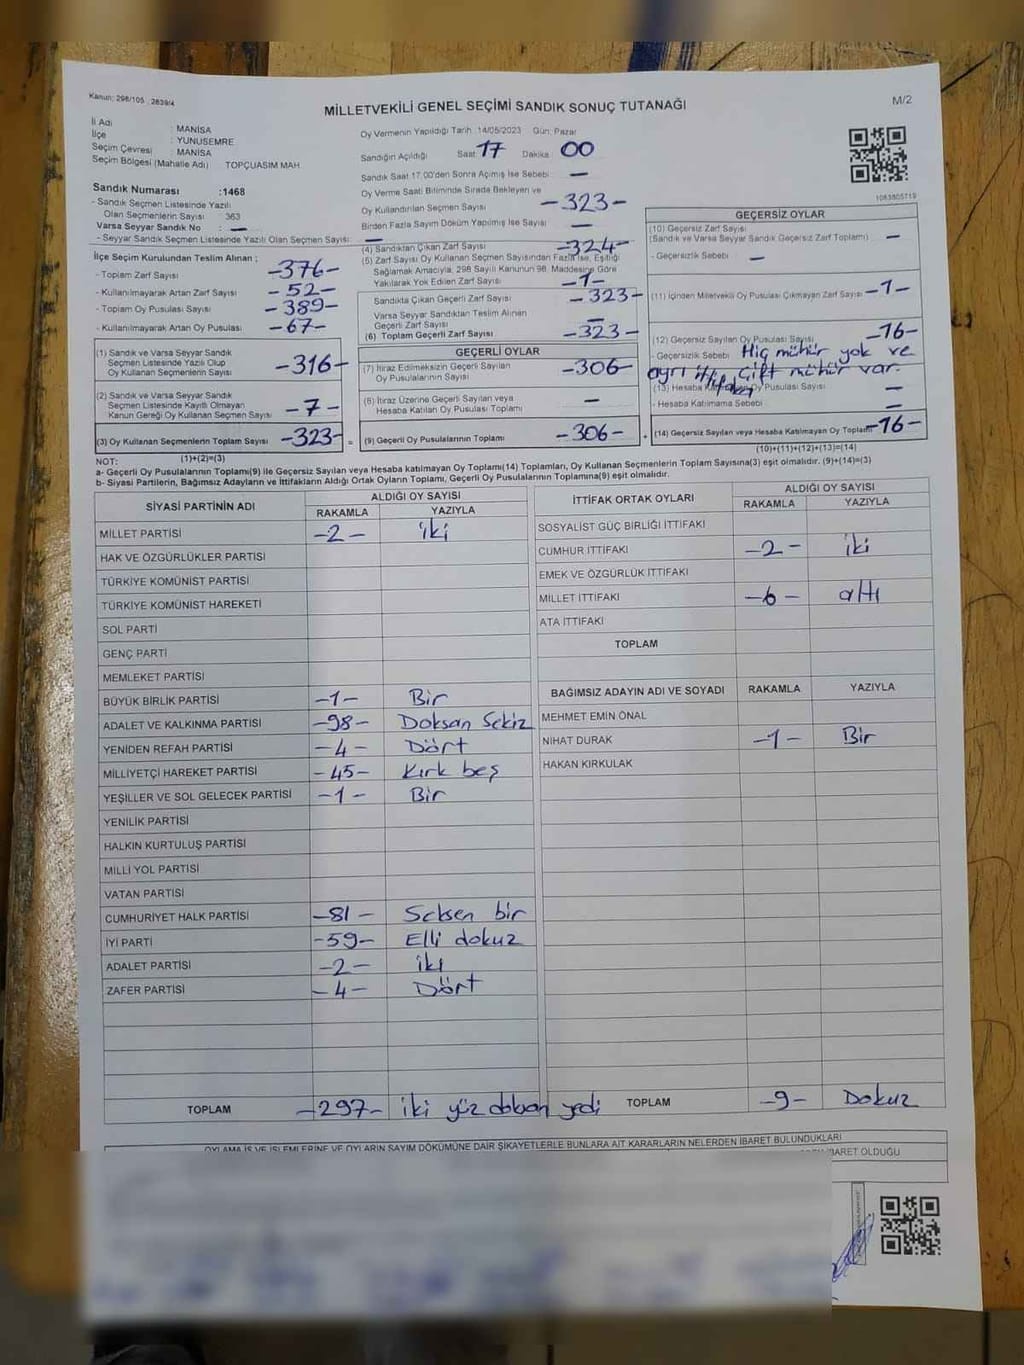 Kanun: 298/105 , 2839/4
MİLLETVEKİLİ GENEL SEÇİMİ SANDIK SONUÇ TUTANAĞI
M/2
İl Adı : MANİSA
İlçe : YUNUSEMRE
Seçim Çevresi : MANİSA
Seçim Bölgesi (Mahalle Adı) TOPÇUASIM MAH.
Sandık Numarası :1468
- Sandık Seçmen Listesinde Yazılı
Olan Seçmenlerin Sayısı : 363
Varsa Seyyar Sandık No : —
- Seyyar Sandık Seçmen Listesinde Yazılı Olan Seçmen Sayısı: —
Oy Vermenin Yapıldığı Tarih: 14/05/2023 Gün: Pazar
Sandığın Açıldığı Saat 17 Dakika 00
Sandık Saat 17:00'den Sonra Açılmış İse Sebebi: —
Oy Verme Saati Bitiminde Sırada Bekleyen ve
Oy Kullandırılan Seçmen Sayısı -323-
Birden Fazla Sayım Döküm Yapılmış İse Sayısı: —
1083805719
İlçe Seçim Kurulundan Teslim Alınan ;
- Toplam Zarf Sayısı -376-
- Kullanılmayarak Artan Zarf Sayısı -52-
- Toplam Oy Pusulası Sayısı -389-
- Kullanılmayarak Artan Oy Pusulası -67-
(1) Sandık ve Varsa Seyyar Sandık
Seçmen Listesinde Yazılı Olup
Oy Kullanan Seçmenlerin Sayısı -316-
(2) Sandık ve Varsa Seyyar Sandık
Seçmen Listesinde Kayıtlı Olmayan
Kanun Gereği Oy Kullanan Seçmen Sayısı -7-
(3) Oy Kullanan Seçmenlerin Toplam Sayısı -323- =
(1)+(2)=(3)
(4) Sandıktan Çıkan Zarf Sayısı -324-
(5) Zarf Sayısı Oy Kullanan Seçmen Sayısından Fazla İse, Eşitliği
Sağlamak Amacıyla, 298 Sayılı Kanunun 98. Maddesine Göre
Yakılarak Yok Edilen Zarf Sayısı -1-
Sandıkta Çıkan Geçerli Zarf Sayısı -323-
Varsa Seyyar Sandıktan Teslim Alınan
Geçerli Zarf Sayısı —
(6) Toplam Geçerli Zarf Sayısı -323-
GEÇERLİ OYLAR
(7) İtiraz Edilmeksizin Geçerli Sayılan
Oy Pusulalarının Sayısı -306-
(8) İtiraz Üzerine Geçerli Sayılan veya
Hesaba Katılan Oy Pusulası Toplamı —
(9) Geçerli Oy Pusulalarının Toplamı -306- +
GEÇERSİZ OYLAR
(10) Geçersiz Zarf Sayısı
(Sandık ve Varsa Seyyar Sandık Geçersiz Zarf Toplamı) —
- Geçersizlik Sebebi —
(11) İçinden Milletvekili Oy Pusulası Çıkmayan Zarf Sayısı -1-
(12) Geçersiz Sayılan Oy Pusulası Sayısı -16-
- Geçersizlik Sebebi Hiç mühür yok ve
ayrı çift mühür var.
(13) Hesaba Oy Pusulası Sayısı —
- Hesaba Katılmama Sebebi —
(14) Geçersiz Sayılan veya Hesaba Katılmayan Oy Toplamı -16-
(10)+(11)+(12)+(13)=(14)
NOT:
a- Geçerli Oy Pusulalarının Toplamı(9) ile Geçersiz Sayılan veya Hesaba katılmayan Oy Toplamı(14) Toplamları, Oy Kullanan Seçmenlerin Toplam Sayısına(3) eşit olmalıdır. (9)+(14)=(3)
b- Siyasi Partilerin, Bağımsız Adayların ve İttifakların Aldığı Ortak Oyların Toplamı, Geçerli Oy Pusulalarının Toplamına(9) eşit olmalıdır.
SİYASİ PARTİNİN ADI ALDIĞI OY SAYISI
RAKAMLA YAZIYLA
MİLLET PARTİSİ -2- iki
HAK VE ÖZGÜRLÜKLER PARTİSİ
TÜRKİYE KOMÜNİST PARTİSİ
TÜRKİYE KOMÜNİST HAREKETİ
SOL PARTİ
GENÇ PARTİ
MEMLEKET PARTİSİ
BÜYÜK BİRLİK PARTİSİ -1- Bir
ADALET VE KALKINMA PARTİSİ -98- Doksan Sekiz
YENİDEN REFAH PARTİSİ -4- Dört
MİLLİYETÇİ HAREKET PARTİSİ -45- Kırk beş
YEŞİLLER VE SOL GELECEK PARTİSİ -1- Bir
YENİLİK PARTİSİ
HALKIN KURTULUŞ PARTİSİ
MİLLİ YOL PARTİSİ
VATAN PARTİSİ
CUMHURİYET HALK PARTİSİ -81- Seksen bir
İYİ PARTİ -59- Elli dokuz
ADALET PARTİSİ -2- iki
ZAFER PARTİSİ -4- Dört
TOPLAM -297- iki yüz doksan yedi
İTTİFAK ORTAK OYLARI ALDIĞI OY SAYISI
RAKAMLA YAZIYLA
SOSYALİST GÜÇ BİRLİĞİ İTTİFAKI
CUMHUR İTTİFAKI -2- iki
EMEK VE ÖZGÜRLÜK İTTİFAKI
MİLLET İTTİFAKI -6- altı
ATA İTTİFAKI
TOPLAM
BAĞIMSIZ ADAYIN ADI VE SOYADI RAKAMLA YAZIYLA
MEHMET EMİN ÖNAL
NİHAT DURAK -1- Bir
HAKAN KIRKULAK
TOPLAM -9- Dokuz
OYLAMA İŞ VE İŞLEMLERİNE VE OYLARIN SAYIM DÖKÜMÜNE DAİR ŞİKAYETLERLE BUNLARA AİT KARARLARIN NELERDEN İBARET BULUNDUKLARI
İBARET OLDUĞU